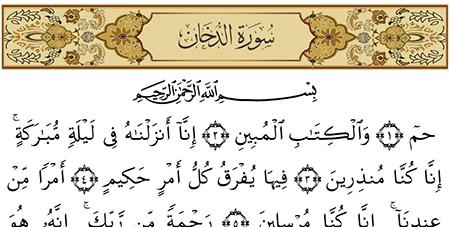 سُورَةُ الدُّخَانِ
بِسْمِ اللَّهِ الرَّحْمَٰنِ الرَّحِيمِ
حمٓ ﴿١﴾ وَٱلْكِتَٰبِ ٱلْمُبِينِ ﴿٢﴾ إِنَّآ أَنزَلْنَٰهُ فِى لَيْلَةٍ مُّبَٰرَكَةٍ ۚ
إِنَّا كُنَّا مُنذِرِينَ ﴿٣﴾ فِيهَا يُفْرَقُ كُلُّ أَمْرٍ حَكِيمٍ ﴿٤﴾ أَمْرًا مِّنْ
عِندِنَآ ۚ إِنَّا كُنَّا مُرْسِلِينَ ﴿٥﴾ رَحْمَةً مِّن رَّبِّكَ ۚ إِنَّهُۥ هُوَ